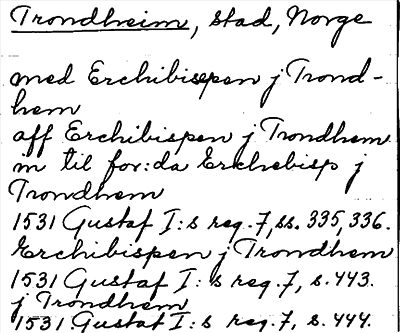 Trondheim, stad, Norge
med Erchibispen j Trond-
hem
aff Erchibispen j Trondhem
in til for:da Erchebisp j
Trondhem
1531 Gustaf I:s reg. 7, ss. 335, 336.
Erchibispen j Trondhem
1531 Gustaf I:s reg. 7, s. 443.
j Trondhem
1531 Gustaf I:s reg. 7, s. 444.